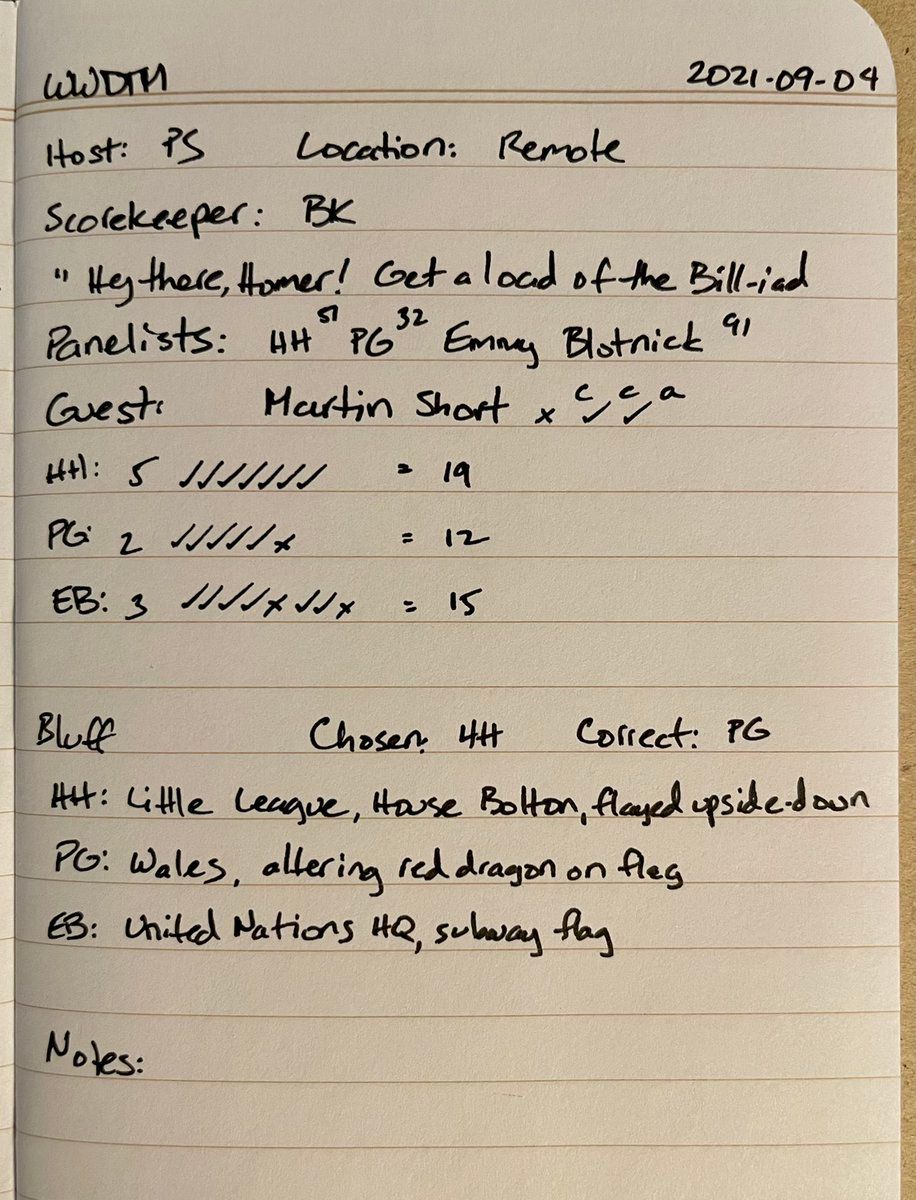 WWDTM 2021-09-04
Host: PS Location: Remote
Scorekeeper: BK
" Hey there, Homer! Get a load of the Bill-iad
Panelists: HH 51 PG 32 Emmy Blotnick 91
Guest: Martin Short x ✓ c ✓ c a
HH: 5 ✓✓✓✓✓✓✓ = 19
PG: 2 ✓✓✓✓✓x = 12
EB: 3 ✓✓✓✓x✓✓x = 15
Bluff Chosen: HH Correct: PG
HH: Little League, House Bolton, flayed upside-down
PG: Wales, altering red dragon on flag
EB: United Nations HQ, subway flag
Notes: